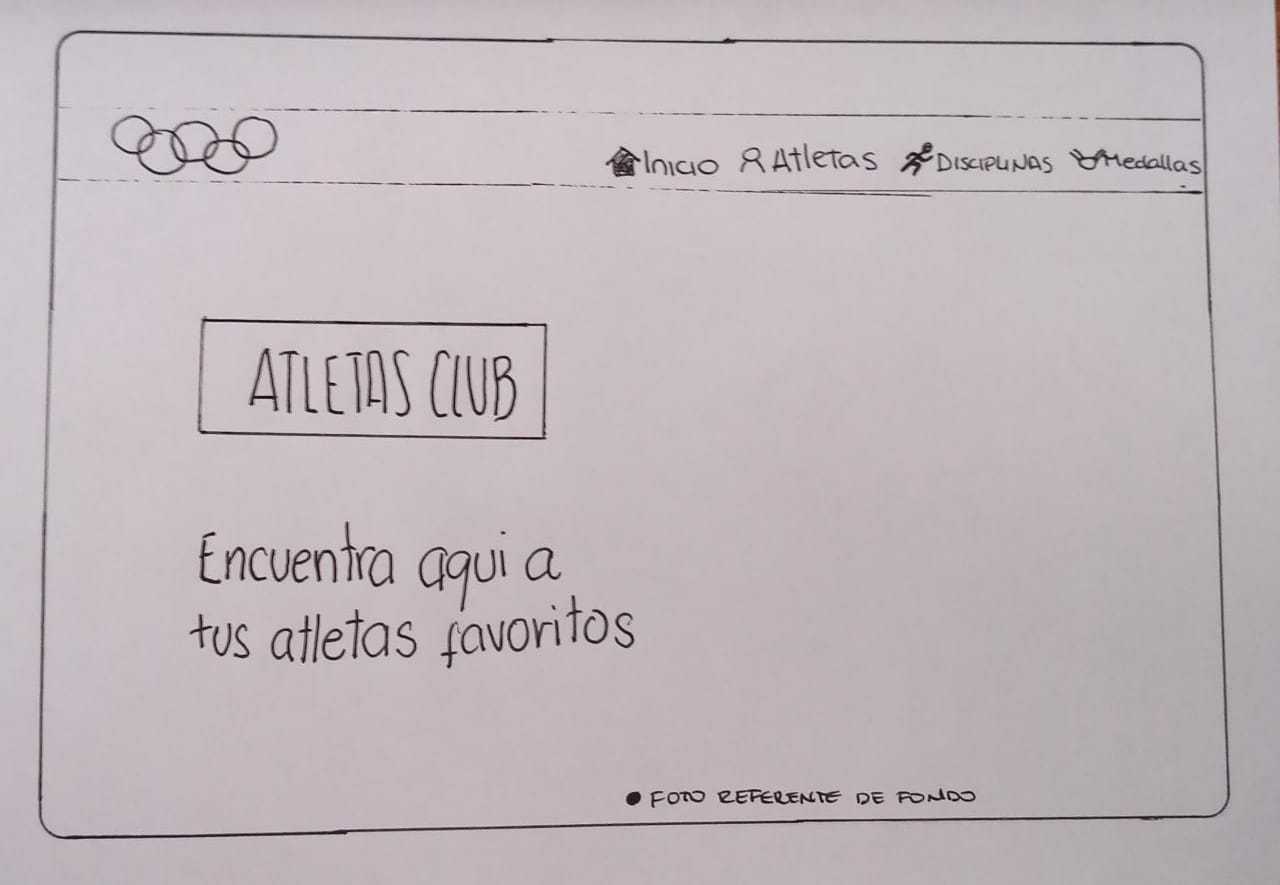 Inicio Atletas DISCIPLINAS Medallas
ATLETAS CLUB
Encuentra aqui a
tus atletas favoritos
● FOTO REFERENTE DE FONDO